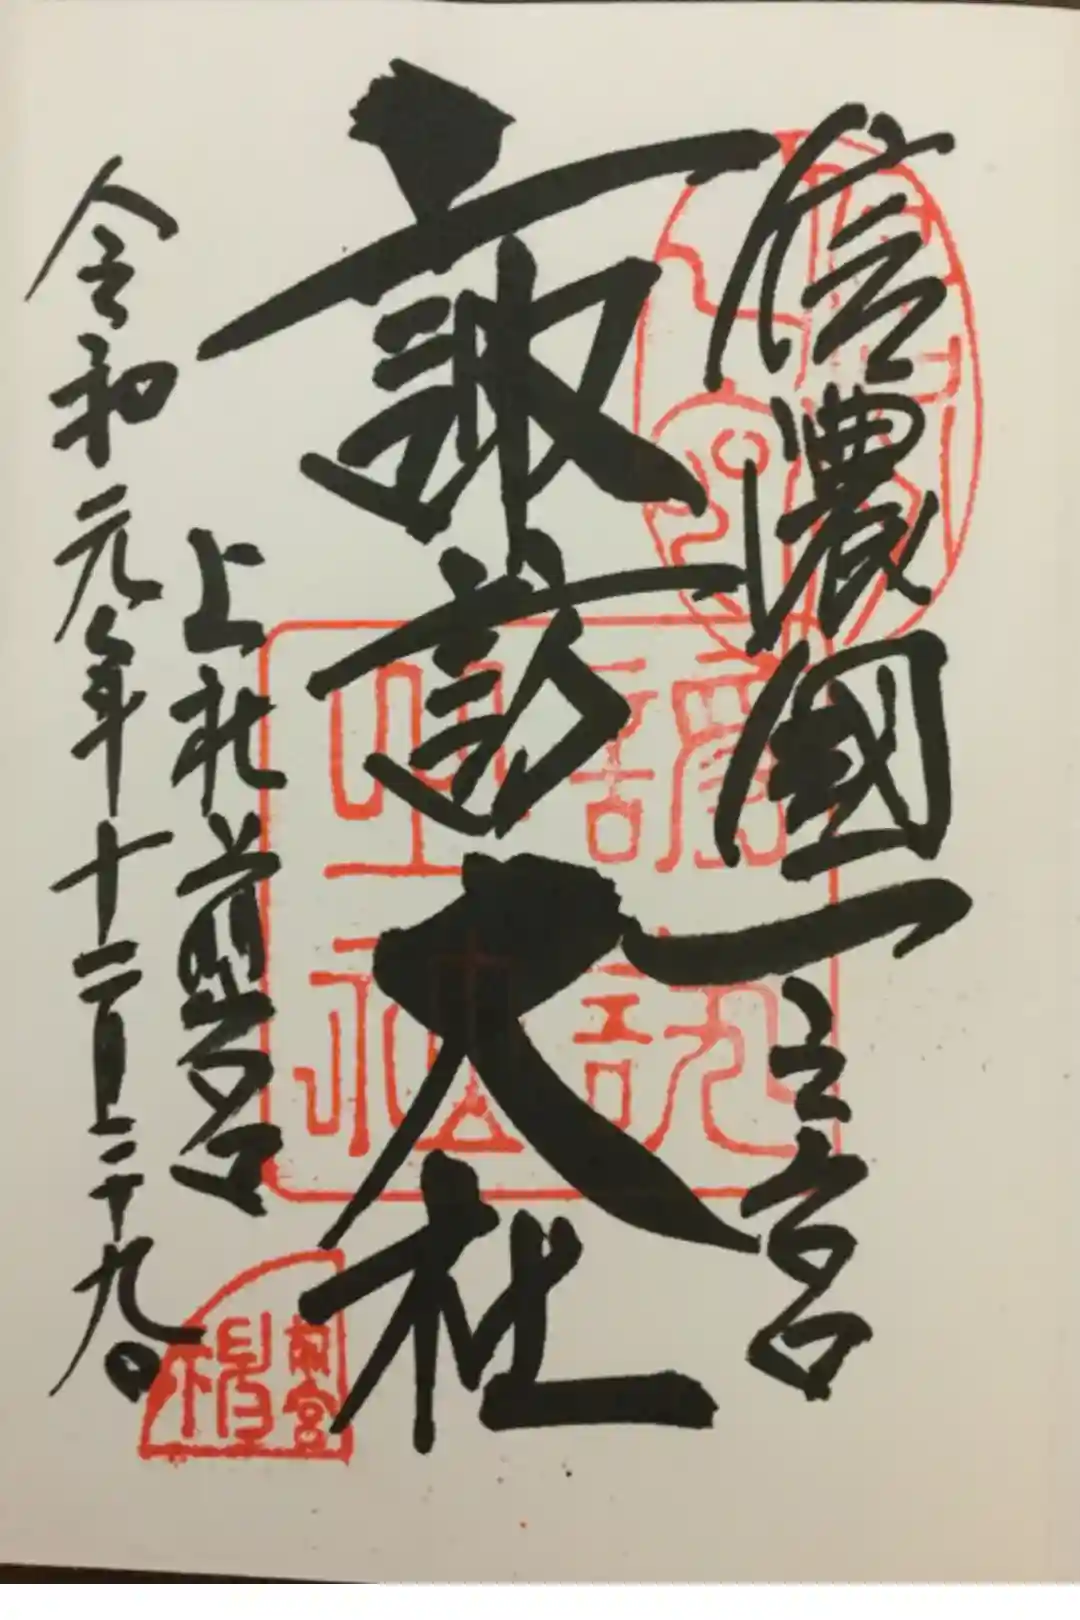 信濃國一之宮
諏訪大社
上社前宮
令和元年十二月二十九日
前宮